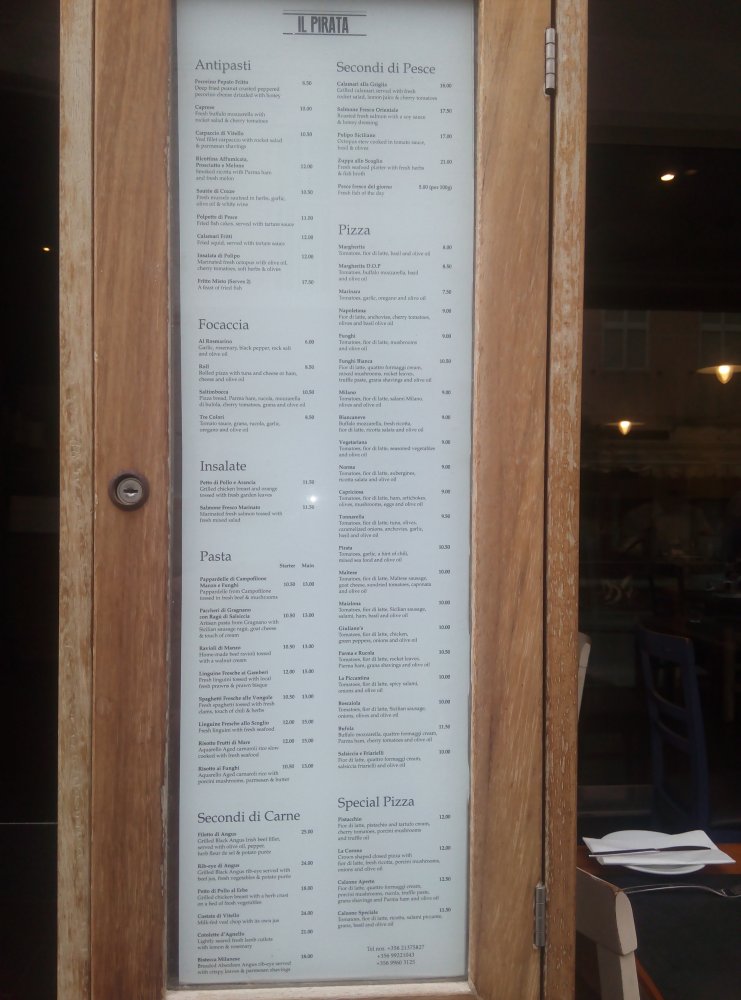 IL PIRATA
Antipasti
Pecorino Pepato Fritto
Deep fried peanut coasted peppered
pecorino cheese drizzled with honey
8.50
Caprese
Fresh buffalo mozzarella with
rocket salad & cherry tomatoes
Carpaccio di Vitello 10.50
Veal fillet carpaccio with rocket salad
& parmesan shavings
Ricottina Affumicata,
Prosciutto e Melone 12.00
Smoked ricotta with Parma ham
and fresh melon
Sautée di Cozze 10.50
Fresh mussels sauteed in herbs, garlic,
olive oil & white wine
Polpette di Pesce 11.00
Fried fish cakes, served with tartare sauce
Calamari Fritti 12.00
Fried squid, served with tartare sauce
Insalata di Polipo 12.00
Marinated fresh octopus with olive oil,
cherry tomatoes, soft herbs & olives
Fritto Misto (Serves 2) 17.50
A feast of fried fish
Focaccia
Al Rosmarino 6.00
Garlic, rosemary, black pepper, rock salt
and olive oil
Roll 8.50
Rolled pizza with tuna and cheese or ham,
cheese and olive oil
Saltimbocca 10.50
Pizza bread, Parma ham, rucola, mozzarella
di bufola, cherry tomatoes, grana and olive oil
Tre Colori 8.50
Tomato sauce, grana, rucola, garlic,
oregano and olive oil
Insalate
Petto di Pollo e Arancia 11.50
Grilled chicken breast and orange
tossed with fresh garden leaves
Salmone Fresco Marinato 11.50
Marinated fresh salmon tossed with
fresh mixed salad
Pasta
Starter Main
Pappardelle di Campofilone
Manzo e Funghi 10.50 13.00
Pappardelle from Campofilone
tossed in fresh beef & mushrooms
Paccheri di Gragnano
con Ragù di Salsiccia 10.50 13.00
Artisan pasta from Gragnano with
Sicilian sausage ragù, goat cheese
& touch of cream
Ravioli di Manzo 10.50 13.00
Home-made beef ravioli tossed
with a walnut cream
Linguine Fresche ai Gamberi 12.00 15.00
Fresh linguini tossed with local
fresh prawns & prawn bisque
Spaghetti Fresche alle Vongole 10.50 13.00
Fresh spaghetti tossed with fresh
clams, touch of chili & herbs
Linguine Fresche allo Scoglio 12.00 15.00
Fresh linguini with fresh seafood
Risotto Frutti di Mare 12.00 15.00
Aquarello Aged carnaroli rice slow
cooked with fresh seafood
Risotto ai Funghi 10.50 13.00
Aquarello Aged carnaroli rice with
porcini mushrooms, parmesan & butter
Secondi di Carne
Filetto di Angus 25.00
Grilled Black Angus Irish beef fillet,
served with olive oil, pepper,
herb fleur de sel & potato purée
Rib-eye di Angus 24.00
Grilled Black Angus rib-eye served with
beef jus, fresh vegetables & potato purée
Petto di Pollo al Erbe 18.00
Grilled chicken breast with a herb crust
on a bed of fresh vegetables
Costata di Vitello 24.00
Milk-fed veal chop with its own jus
Cotolette d'Agnello 21.00
Lightly seared fresh lamb cutlets
with lemon & rosemary
Bistecca Milanese 18.00
Breaded Aberdeen Angus rib-eye served
with crispy leaves & parmesan shavings
Secondi di Pesce
Calamari alla Griglia 16.00
Grilled calamari served with fresh
rocket salad, lemon juice & cherry tomatoes
Salmone Fresco Orientale 17.50
Roasted fresh salmon with a soy sauce
& honey dressing
Polipo Siciliano 17.00
Octopus stew cooked in tomato sauce,
basil & olives
Zuppa allo Scoglio 21.00
Fresh seafood platter with fresh herbs
& fish broth
Pesce fresco del giorno 5.00 (per 100g)
Fresh fish of the day
Pizza
Margherita 8.00
Tomatoes, fior di latte, basil and olive oil
Margherita D.O.P 8.50
Tomatoes, buffalo mozzarella, basil
and olive oil
Marinara 7.50
Tomatoes, garlic, oregano and olive oil
Napoletana 9.00
Fior di latte, anchovies, cherry tomatoes,
olives and basil olive oil
Funghi 9.00
Tomatoes, fior di latte, mushrooms
and olive oil
Funghi Bianca 10.50
Fior di latte, quattro formaggi cream,
mixed mushrooms, rocket leaves,
truffle paste, grana shavings and olive oil
Milano 9.00
Tomatoes, fior di latte, salami Milano,
olives and olive oil
Biancaneve 9.00
Buffalo mozzarella, fresh ricotta,
fior di latte, ricotta salata and olive oil
Vegetariana 9.00
Tomatoes, fior di latte, seasoned vegetables
and olive oil
Norma 9.00
Tomatoes, fior di latte, aubergines,
ricotta salata and olive oil
Capriciosa 9.00
Tomatoes, fior di latte, ham, artichokes,
olives, mushrooms, eggs and olive oil
Tonnarella 9.50
Tomatoes, fior di latte, tuna, olives,
caramelized onions, anchovies, garlic,
basil and olive oil
Pirata 10.50
Tomatoes, garlic, a hint of chili,
mixed sea food and olive oil
Maltese 10.00
Tomatoes, fior di latte, Maltese sausage,
goat cheese, sundried tomatoes, caponata
and olive oil
Maialona 10.00
Tomatoes, fior di latte, Sicilian sausage,
salami, ham, basil and olive oil
Giuliano's 10.00
Tomatoes, fior di latte, chicken,
green peppers, onions and olive oil
Parma e Rucola 10.50
Tomatoes, fior di latte, rocket leaves,
Parma ham, grana shavings and olive oil
La Piccantina 10.00
Tomatoes, fior di latte, spicy salami,
onions and olive oil
Boscaiola 10.00
Tomatoes, fior di latte, Sicilian sausage,
onions, olives and olive oil
Bufola 11.50
Buffalo mozzarella, quattro formaggi cream,
Parma ham, cherry tomatoes and olive oil
Salsiccia e Friarielli 10.00
Fior di latte, quattro formaggi cream,
salsiccia friarielli and olive oil
Special Pizza
Pistacchio 12.00
Fior di latte, pistachio and tartufo cream,
cherry tomatoes, porcini mushrooms
and truffle oil
La Corona 12.00
Crown shaped closed pizza with
fior di latte, fresh ricotta, porcini mushrooms,
onions and olive oil
Calzone Aperto 12.50
Fior di latte, quattro formaggi cream,
porcini mushrooms, rucola, truffle paste,
grana shavings and Parma ham and olive oil
Calzone Speciale 12.50
Tomatoes, fior di latte, ricotta, salami piccante,
grana, basil and olive oil
Tel nos: +356 21375827
+356 99221043
+356 9960 3125